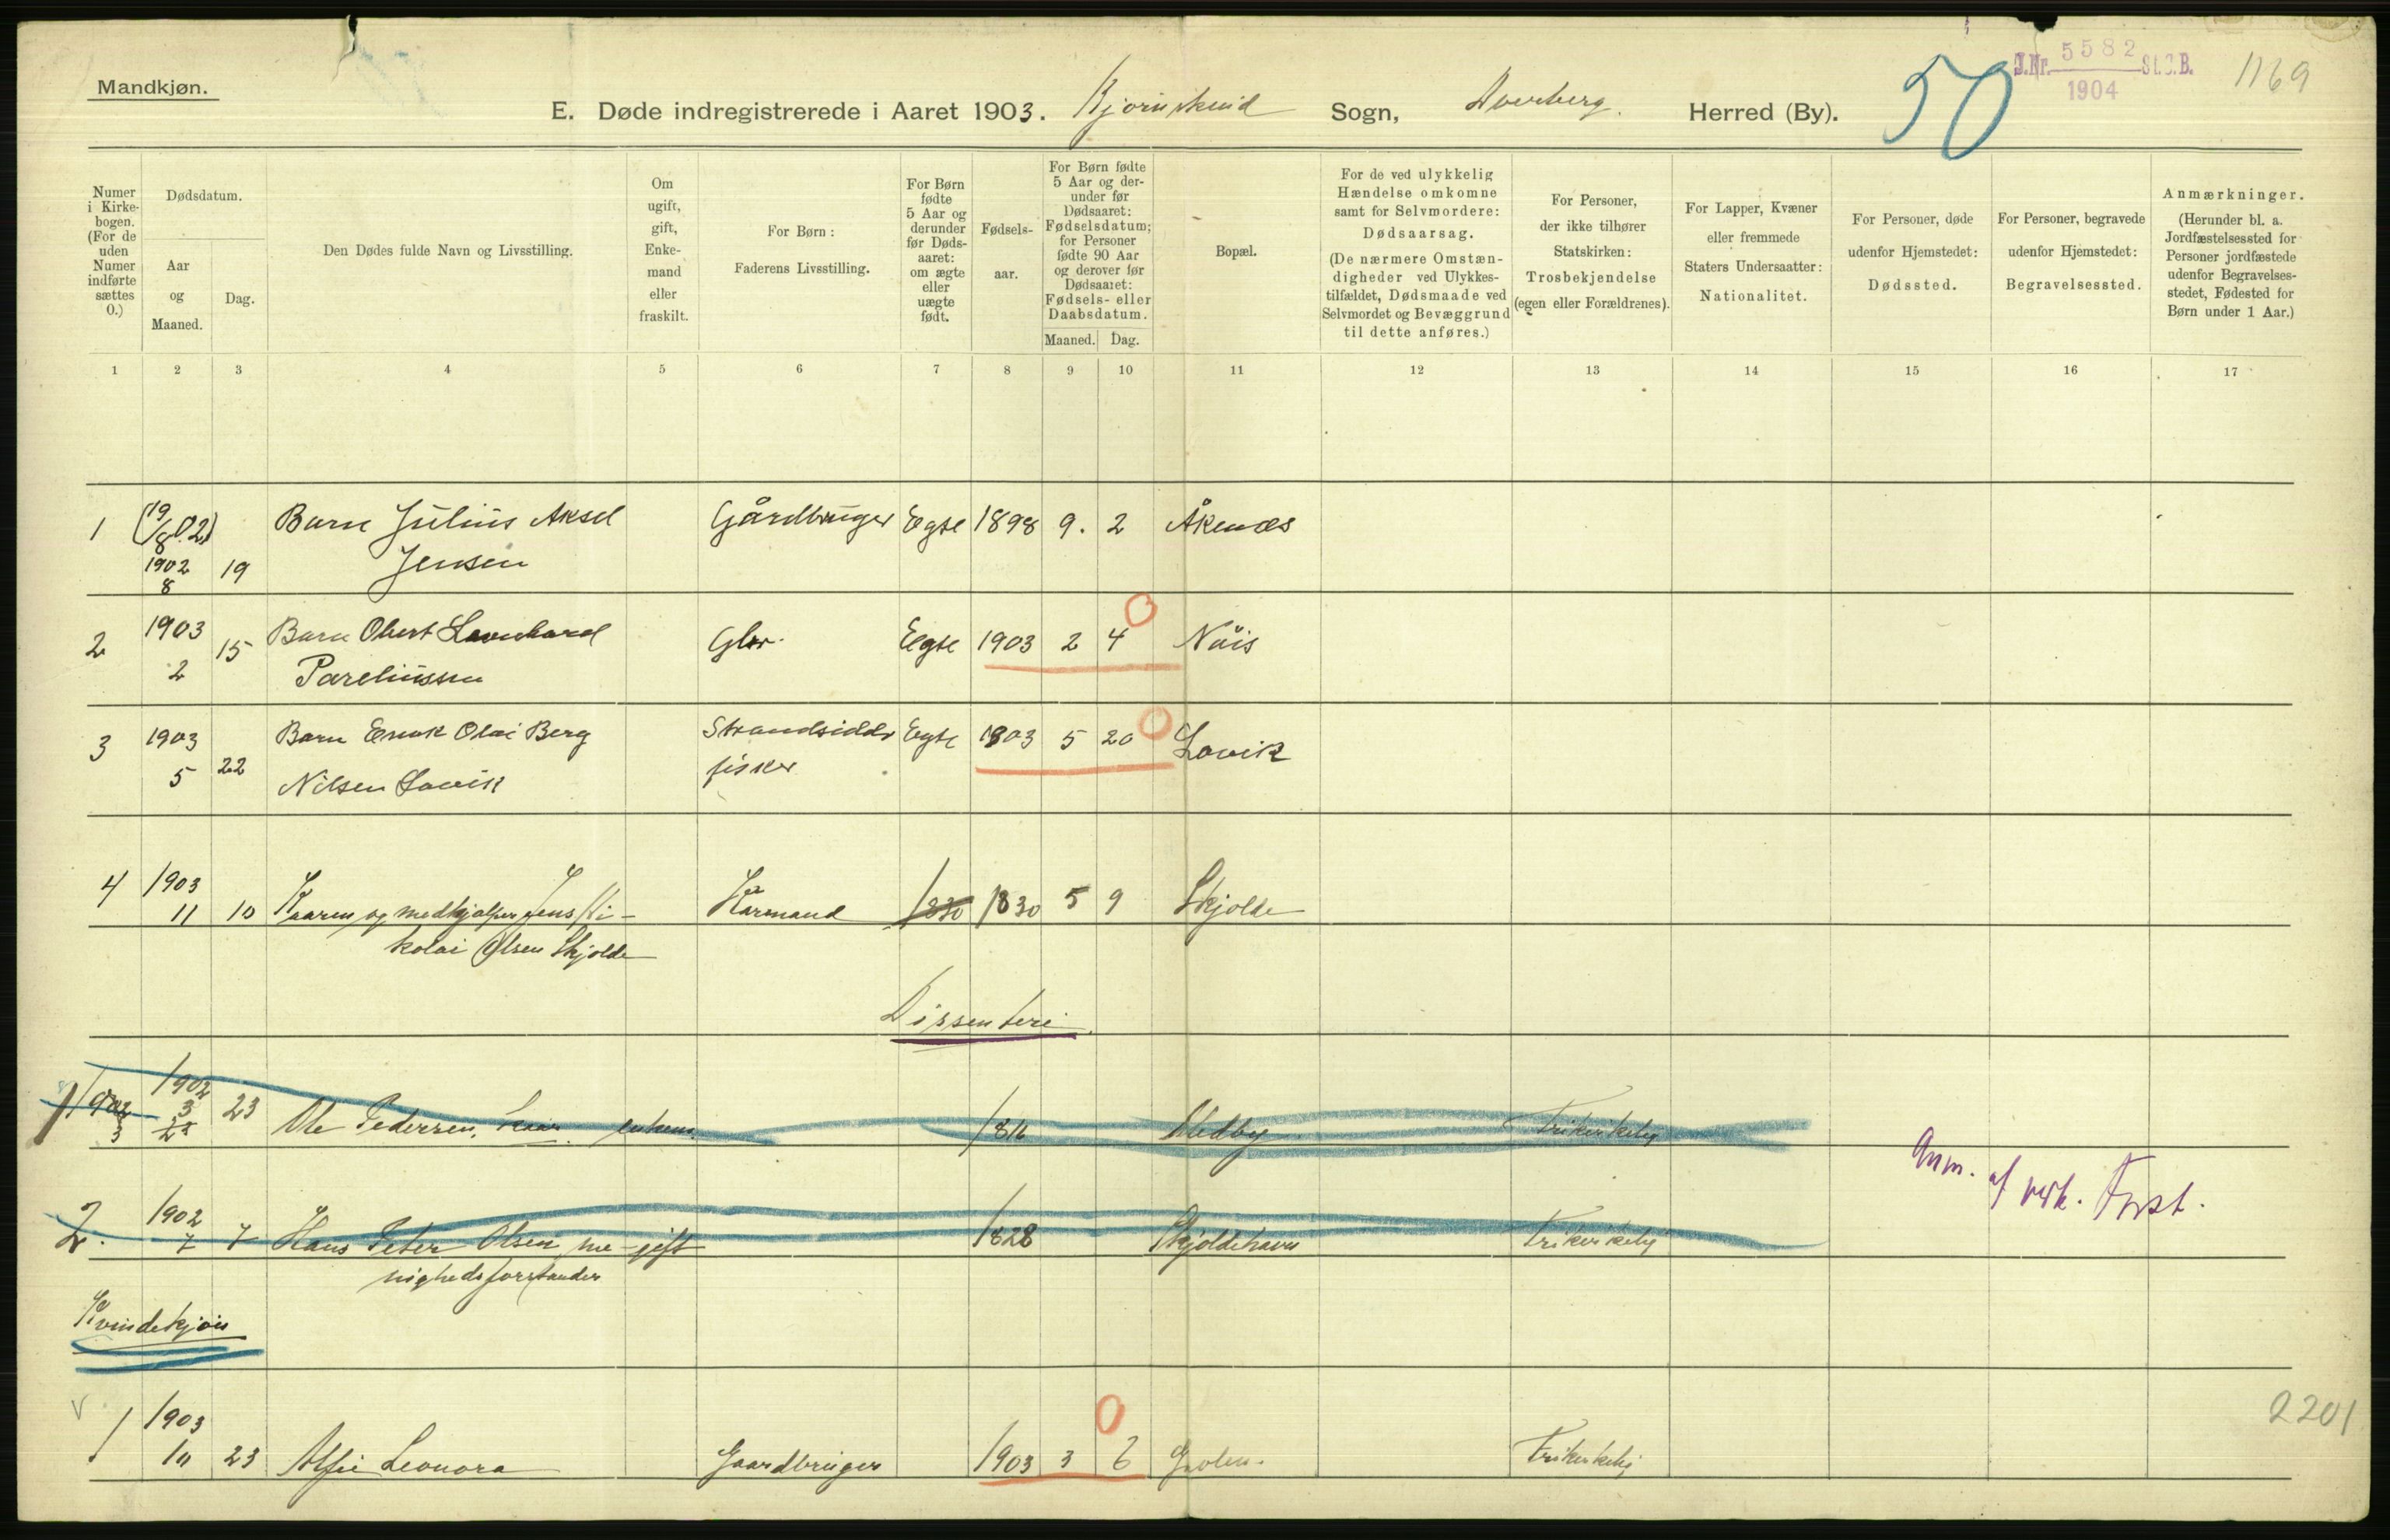 Mandkjøn.
J.Nr. 5582 St.C.B.
1904
1169
50
E. Døde indregistrerede i Aaret 1903. Bjørnskind Sogn, Dverberg. Herred (By).
Numer i Kirkebogen. (For de uden Numer indførte sættes 0.)
Dødsdatum.
Aar og Maaned.
Dag.
Den Dødes fulde Navn og Livsstilling.
Om ugift, gift, Enkemand eller fraskilt.
For Børn: Faderens Livsstilling.
For Børn fødte 5 Aar og derunder før Dødsaaret: om ægte eller uægte født.
Fødselsaar.
For Børn fødte 5 Aar og derunder før Dødsaaret: Fødselsdatum; for Personer fødte 90 Aar og derover før Dødsaaret: Fødsels- eller Daabsdatum.
Maaned. Dag.
Bopæl.
For de ved ulykkelig Hændelse omkomne samt for Selvmordere: Dødsaarsag. (De nærmere Omstændigheder ved Ulykkestilfældet, Dødsmaade ved Selvmordet og Bevæggrund til dette anføres.)
For Personer, der ikke tilhører Statskirken: Trosbekjendelse (egen eller Forældrenes).
For Lapper, Kvæner eller fremmede Staters Undersaatter: Nationalitet.
For Personer, døde udenfor Hjemstedet: Dødssted.
For Personer, begravede udenfor Hjemstedet: Begravelsessted.
Anmærkninger. (Herunder bl. a. Jordfæstelsessted for Personer jordfæstede udenfor Begravelsesstedet, Fødested for Børn under 1 Aar.)
1 2 3 4 5 6 7 8 9 10 11 12 13 14 15 16 17
1 (19/8 02) Barn Julius Aksel Gårdbruger Egte 1898 9. 2 Åkenæs
1902 8 19 Jensen
2 1903 2 15 Barn Obert Leonhard Gbr. Egte 1903 2 4 Nøis
Pareliussen
3 1903 5 22 Barn Enok Olai Berg Strandsidder Egte 1903 5 20 Lovik
Nilsen Lovik fisker
4 1903 11 10 Kaarm og medhjælper Jens Ni- Kårmand 1830 1830 5 9 Skjolde
kolai Olsen Skjolde
Dissentere.
1 1902 3 23 Ole Pedersen, enkem. 1816 Medby Frikirkelig
Anm. af Forst.
2. 1902 7 7 Hans Peter Olsen, me- gift 1828 Skjoldehavn Frikirkelig
nighedsforstander
Kvindekjøn
1 1903 10 23 Alfie Leonora Gaardbruger 1903 3 6 Frikirkelig
2201